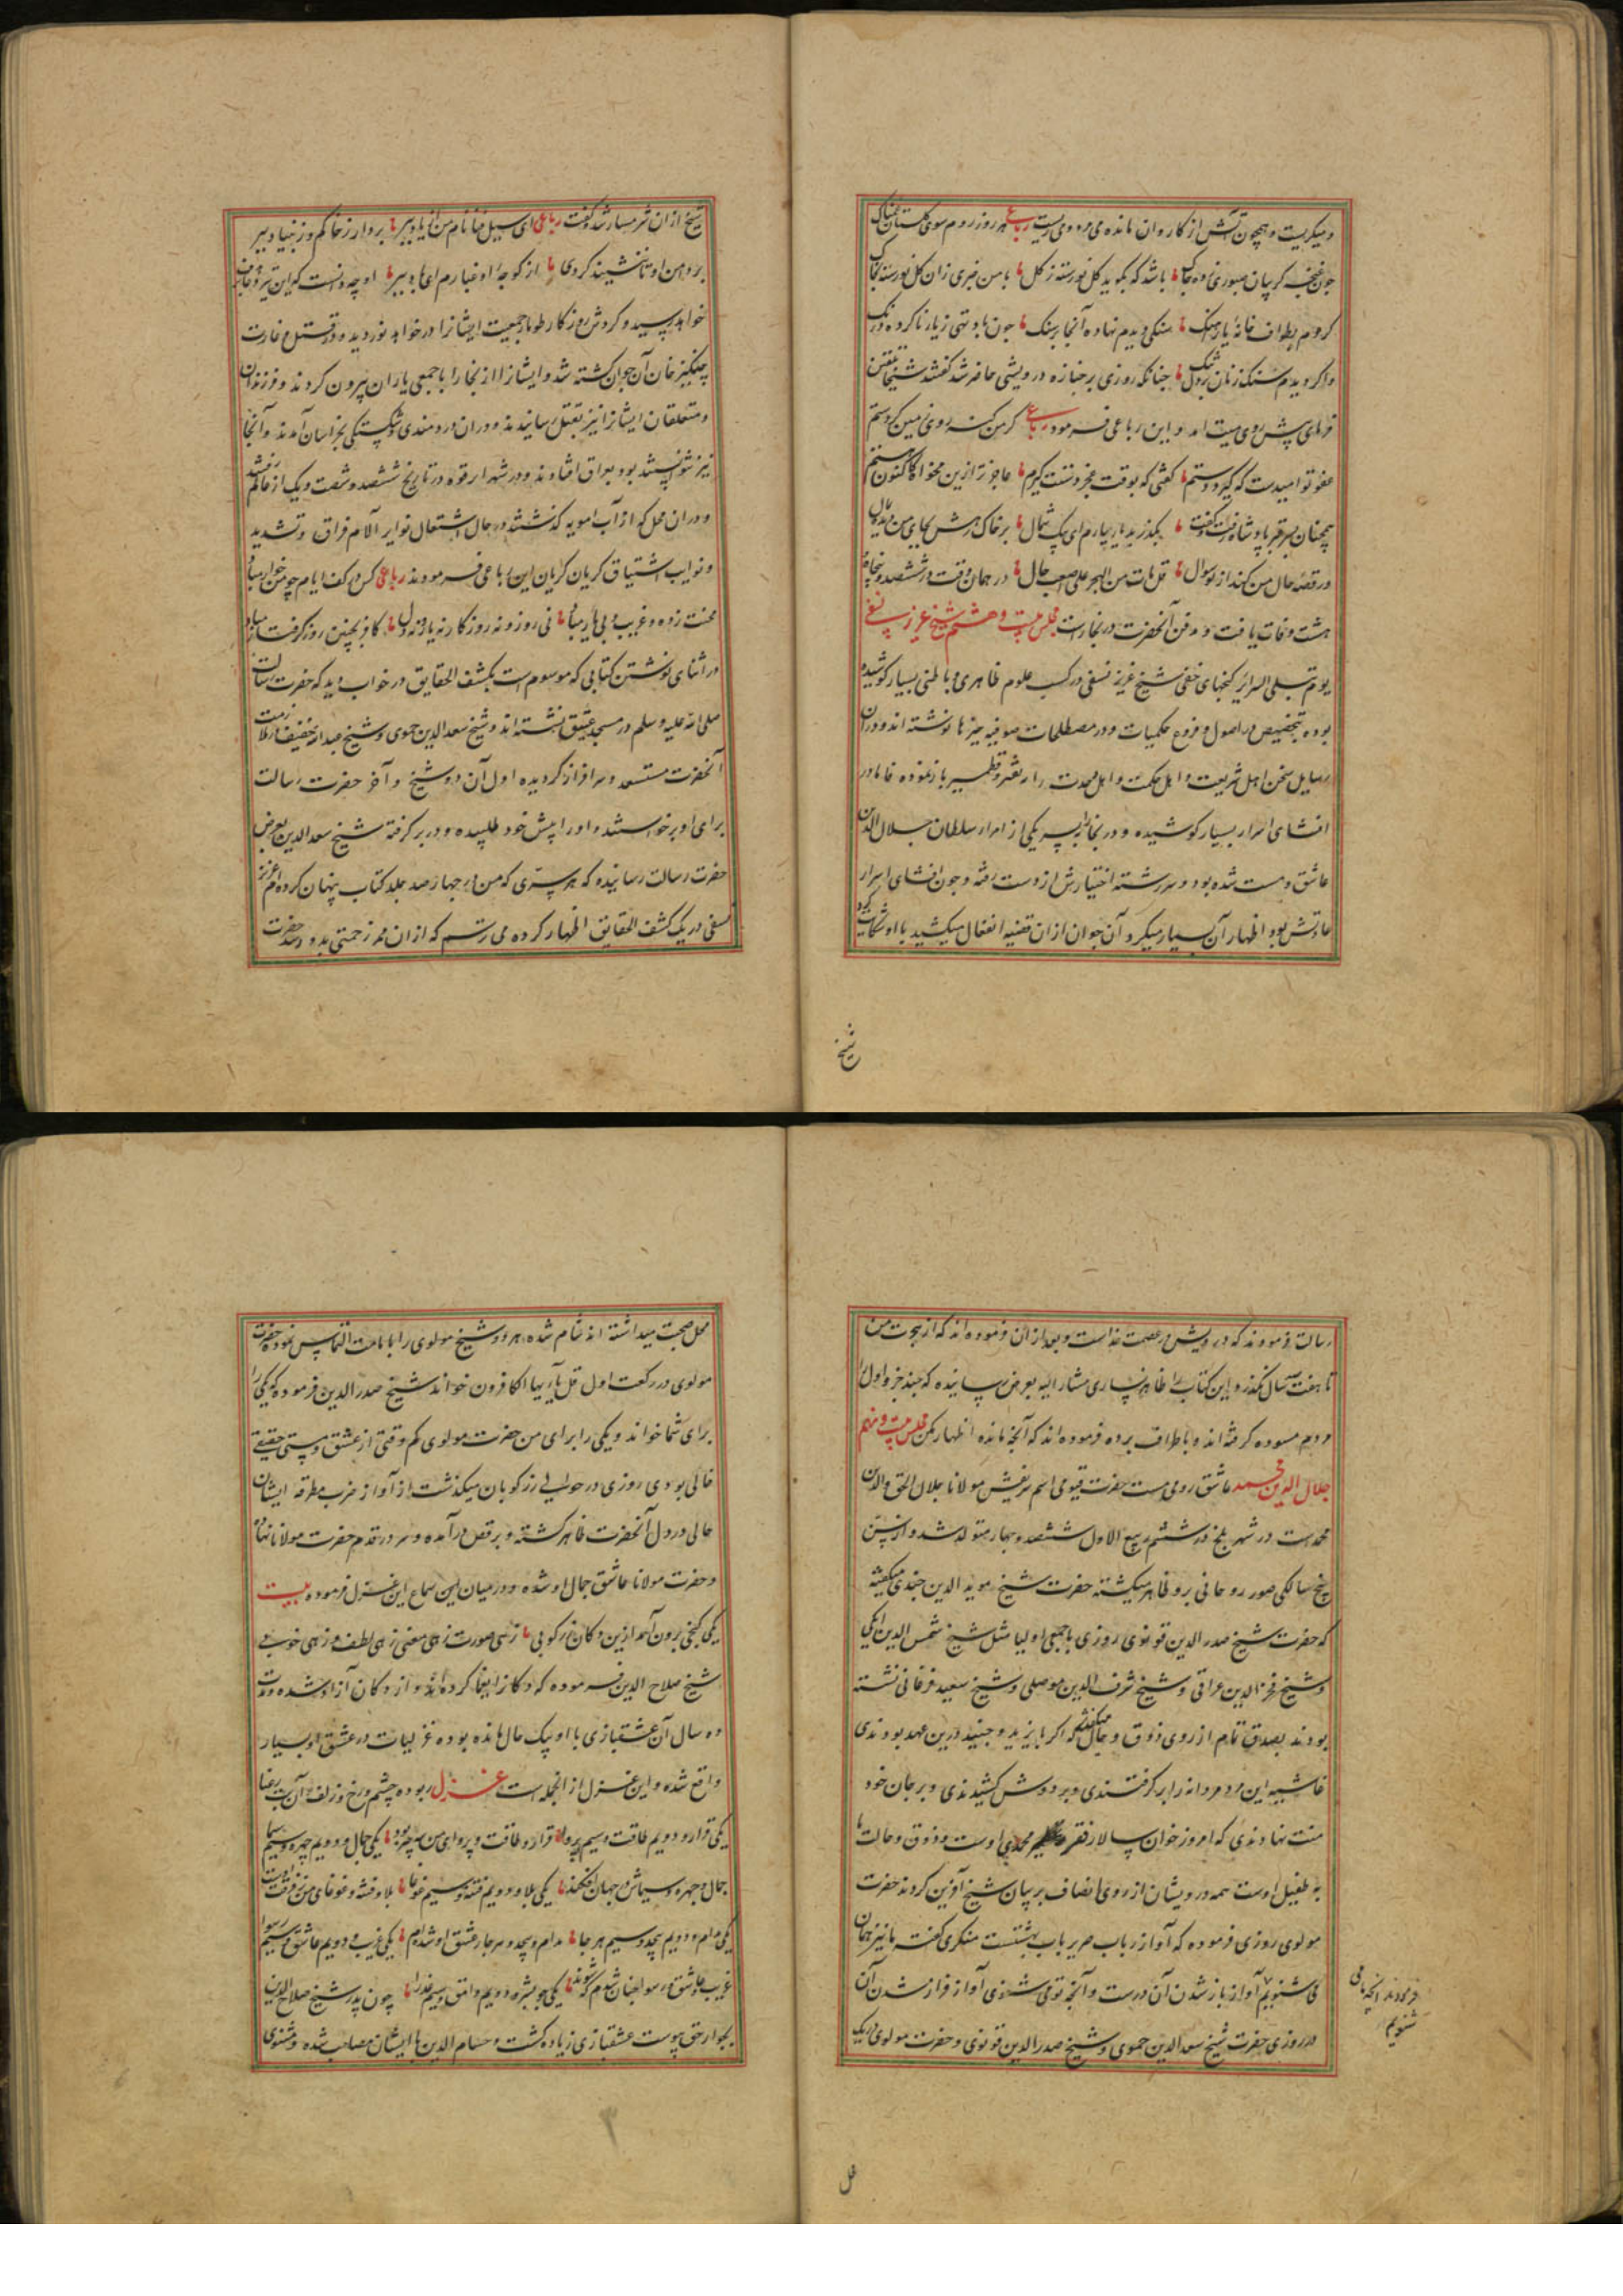 و میگریست و همچون آتش از کاروان مانده می‌بود و می‌گریست رباعی هر روز روم سوی گلستان غمناک
چون غنچه گریبان صبوری زده چاک باشد که بگوید گل نورسته ز گل با من خبری زان گل نورسته بخاک
کردم بطواف خانهٔ یار آهنگ سنگی دیدم نهاده آنجا بر سنگ چون با و تهی زیارنا کرده درنگ
واگردیدم سنگ زنان بر دل تنگ چنانکه روزی بر جنازه درویشی حاضر شد گفتند شیخا تلقین
فرمای پیش روی میت آمد و این رباعی فرمود رباعی گر من گنه روی زمین کردستم
عفو تو امیدست که گیرد دستم گفتی که بوقت عجز دستت گیرم عاجزتر ازین مخواه کاکنون هستم
همچنان بسر قبر پادشاه رفت و گفت بگذر بدیار یارم ای پیک شمال بر خاک رهش بجای من دیده بمال
ور قصهٔ حال من کند از تو سوال قل مات من الهجر علی اصعب حال در همان وقت در ششصد و پنجاه
هشت وفات یافت و مدفن آنحضرت در بخاراست مجلس بیست و هشتم شیخ عزیز نسفی
یوم تبلی السرایر گنجهای خفی شیخ عزیز نسفی در کسب علوم ظاهری و باطنی بسیار کوشیده
بوده بتخصیص در اصول و فروع حکمیات و در مصطلحات صوفیه چیزها نوشته اند و در آن
رسایل سخن اهل شریعت و اهل حکمت و اهل وحدت را بنقیر و قطمیر باز نموده فاما در
افشای اسرار بسیار کوشیده و در بخارا بپسر یکی از امراء سلطان جلال الدین
عاشق و مست شده بود و سررشته اختیارش از دست رفته و چون افشای اسرار
عادتش بود اظهار آن بسیار میکرد و آن جوان از ان قضیه انفعال میکشید با او شکایت کرد
شیخ
شیخ از ان شرمسار شد و گفت رباعی ای سیل فنا نام من از یاد ببر بردار ز خاکم و ز بنیاد ببر
بر دامن او تا ننشیند گردی از کوچهٔ او غبارم ای باد ببر او چه دانست که این تیر دعا بهدف
خواهد رسید و گردش روزگار طومار جمعیت ایشانرا در خواهد نوردید و در قتل و غارت
چنگیز خان آن جوان کشته شد و ایشانرا از بخارا با جمعی یاران بیرون کردند و فرزندان
و متعلقان ایشانرا نیز بقتل رسانیدند و در ان دردمندی و شکستگی بخراسان آمدند و آنجا
نیز نتوانستند بود بعراق افتادند و در شهر ابرقوه در تاریخ ششصد و شصت و یک از عالم رفتند
و در ان محل که از آب امویه گذشتند در حال اشتعال نوایر آلام فراق و تشدید
و نوایب اشتیاق گریان گریان این رباعی فرمودند رباعی کس در کف ایام چو من خوار مباد
محنت زده و غریب و بی یار مباد نی روز و نه روزگار نه یار و نه دل کافر بچنین روز گرفتار مباد
در اثنای نوشتن کتابی که موسوم است بکشف الحقایق در خواب دید که حضرت رسالت
صلی الله علیه و سلم در مسجد عتیق نشسته اند و شیخ سعد الدین حموی و شیخ عبدالله خفیف بملازمت
آنحضرت مستسعد و سرافراز گردیده اول آن دو شیخ و آخر حضرت رسالت
برای او برخاستند و او را پیش خود طلبیده و در بر گرفته شیخ سعد الدین بعرض
حضرت رسالت رسانیده که هر سرّی که من در چهار صد جلد کتاب پنهان کرده‌ام عزیز
نسفی در یک کشف الحقایق اظهار کرده می ترسم که از ان ممر زحمتی بدو رسد حضرت
رسالت فرمودند که درویش در عصمت خداست و بعد از ان فرموده اند که از هجرت من
تا هفتصد سال نگذرد این کتاب را ظاهر نسازی مشار الیه بعرض رسانیده که چند جزو اول
مردم مسوده گرفته اند و باطراف برده فرموده اند که آنچه مانده اظهار مکن مجلس بیست و نهم
جلال الدین محمد عاشق رومی مست حضرت قیومی اسم شریفش مولانا جلال الحق والدین
محمدست در شهر بلخ در ششم ربیع الاول ششصد و چهار متولد شد و از سن
پنج سالگی صور روحانی برو ظاهر میگشته حضرت شیخ موید الدین جندی میگفته
که حضرت شیخ صدر الدین قونوی روزی با جمعی اولیا مثل شیخ شمس الدین ایکی
و شیخ فخر الدین عراقی و شیخ شرف الدین موصلی و شیخ سعید فرغانی نشسته
بودند بصدق تمام از روی ذوق و حال میگفتند که اگر بایزید و جنید درین عهد بودندی
غاشیه این مرد مردانه را برگرفتندی و بر دوش کشیدندی و بر جان خود
منت نهادندی که امروز خوان سالار فقر محمدی اوست و ذوق و حالت ما
به طفیل اوست همه درویشان از روی انصاف بر بیان شیخ آفرین کردند حضرت
مولوی روزی فرموده که آواز رباب صریر باب بهشتست منکری گفت ما نیز همان
می شنویم آواز باز شدن آن درست و آنچه تو می شنوی آواز فراز شدن آن
در روزی حضرت شیخ سعد الدین حموی و شیخ صدر الدین قونوی و حضرت مولوی در یک
فرمودند آنچه ما می
شنویم
محل صحبت میداشته اند شام شده هر دو شیخ مولوی را بامامت التماس نموده حضرت
مولوی در رکعت اول قل یا ایها الکافرون خواند شیخ صدر الدین فرموده که یکی را
برای شما خواند و یکی را برای من حضرت مولوی کم وقتی از عشق و مستی حقیقی
خالی بودی روزی در حوالی زرکوبان میگذشت از آواز ضرب مطرقه ایشان
حالی در دل آنحضرت ظاهر گشته و برقص درآمده و سر در قدم حضرت مولانا نهاد
و حضرت مولانا عاشق جمال او شده و در میان این سماع این غزل فرموده بیت
یکی گنجی برون آمد ازین دکان زرکوبی زهی صورت زهی معنی زهی لطف و زهی خوبی
شیخ صلاح الدین فرموده که دکانرا یغما کرده اند و از دکان آزاد شده و مدت
ده سال آن عشقبازی با او بیک حال مانده بوده غزلیات در عشق او بسیار
واقع شده و این غزل از انجمله است غزل ربوده چشم و رخ و زلف آن بت رعنا
یکی قرار و دویم طاقت و سیم پروا قرار و طاقت و پروای من سه چیز بود یکی جمال و دویم چهره و سیم سیما
جمال و چهره و سیماش در جهان افکند یکی بلا و دویم فتنه و سیم غوغا بلا و فتنه و غوغای من ز فرقت اوست
یکی مدام و دویم بیحد و سیم هر جا مدام و بیحد و هر جا ز عشق او شده‌ام یکی غریب و دویم عاشق و سیم رسوا
یکی چو بشر و دویم وامق و سیم عذرا چون پدر شیخ صلاح الدین
بجوار حق پیوست عشقبازی زیاده گشت و حسام الدین با ایشان مصاحب شده و مثنوی